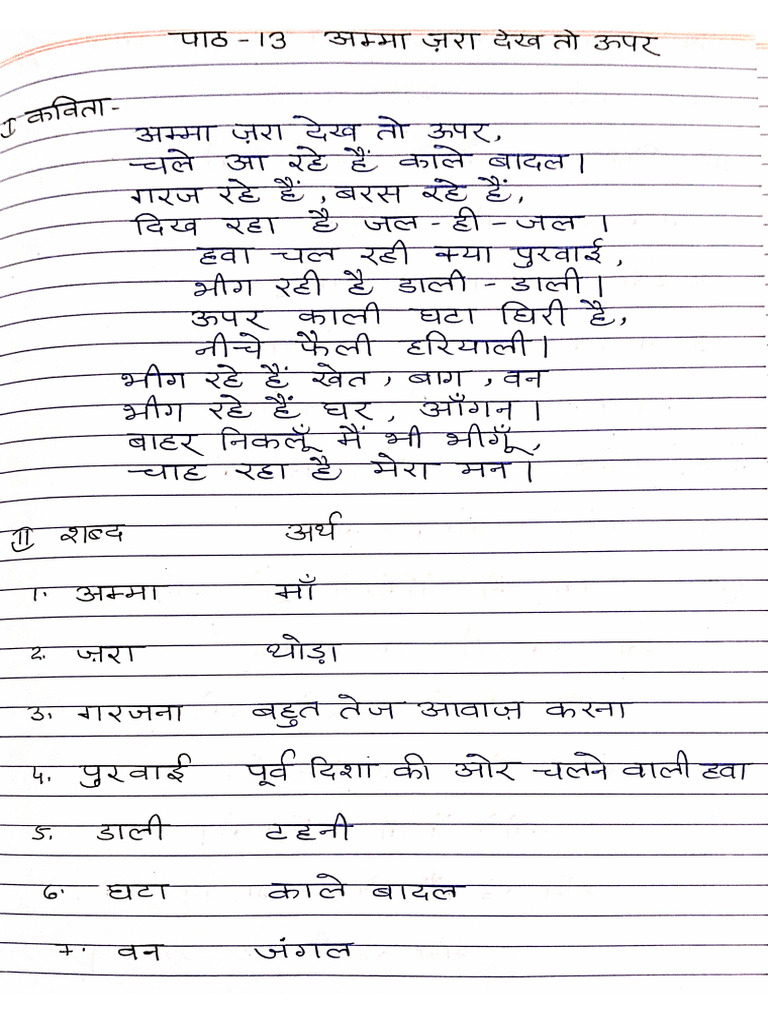 पाठ - 13 अम्मा ज़रा देख तो ऊपर
I कविता -
अम्मा ज़रा देख तो ऊपर,
चले आ रहे हैं काले बादल।
गरज रहे हैं, बरस रहे हैं,
दिख रहा है जल - ही - जल ।
हवा चल रही क्या पुरवाई,
भीग रही है डाली - डाली।
ऊपर काली घटा घिरी है,
नीचे फैली हरियाली।
भीग रहे हैं खेत, बाग, वन
भीग रहे हैं घर, आँगन ।
बाहर निकलूँ मैं भी भीगूँ,
चाह रहा है मेरा मन।
II शब्द अर्थ
1. अम्मा माँ
2. ज़रा थोड़ा
3. गरजना बहुत तेज आवाज़ करना
4. पुरवाई पूर्व दिशा की ओर चलने वाली हवा
5. डाली टहनी
6. घटा काले बादल
7. वन जंगल